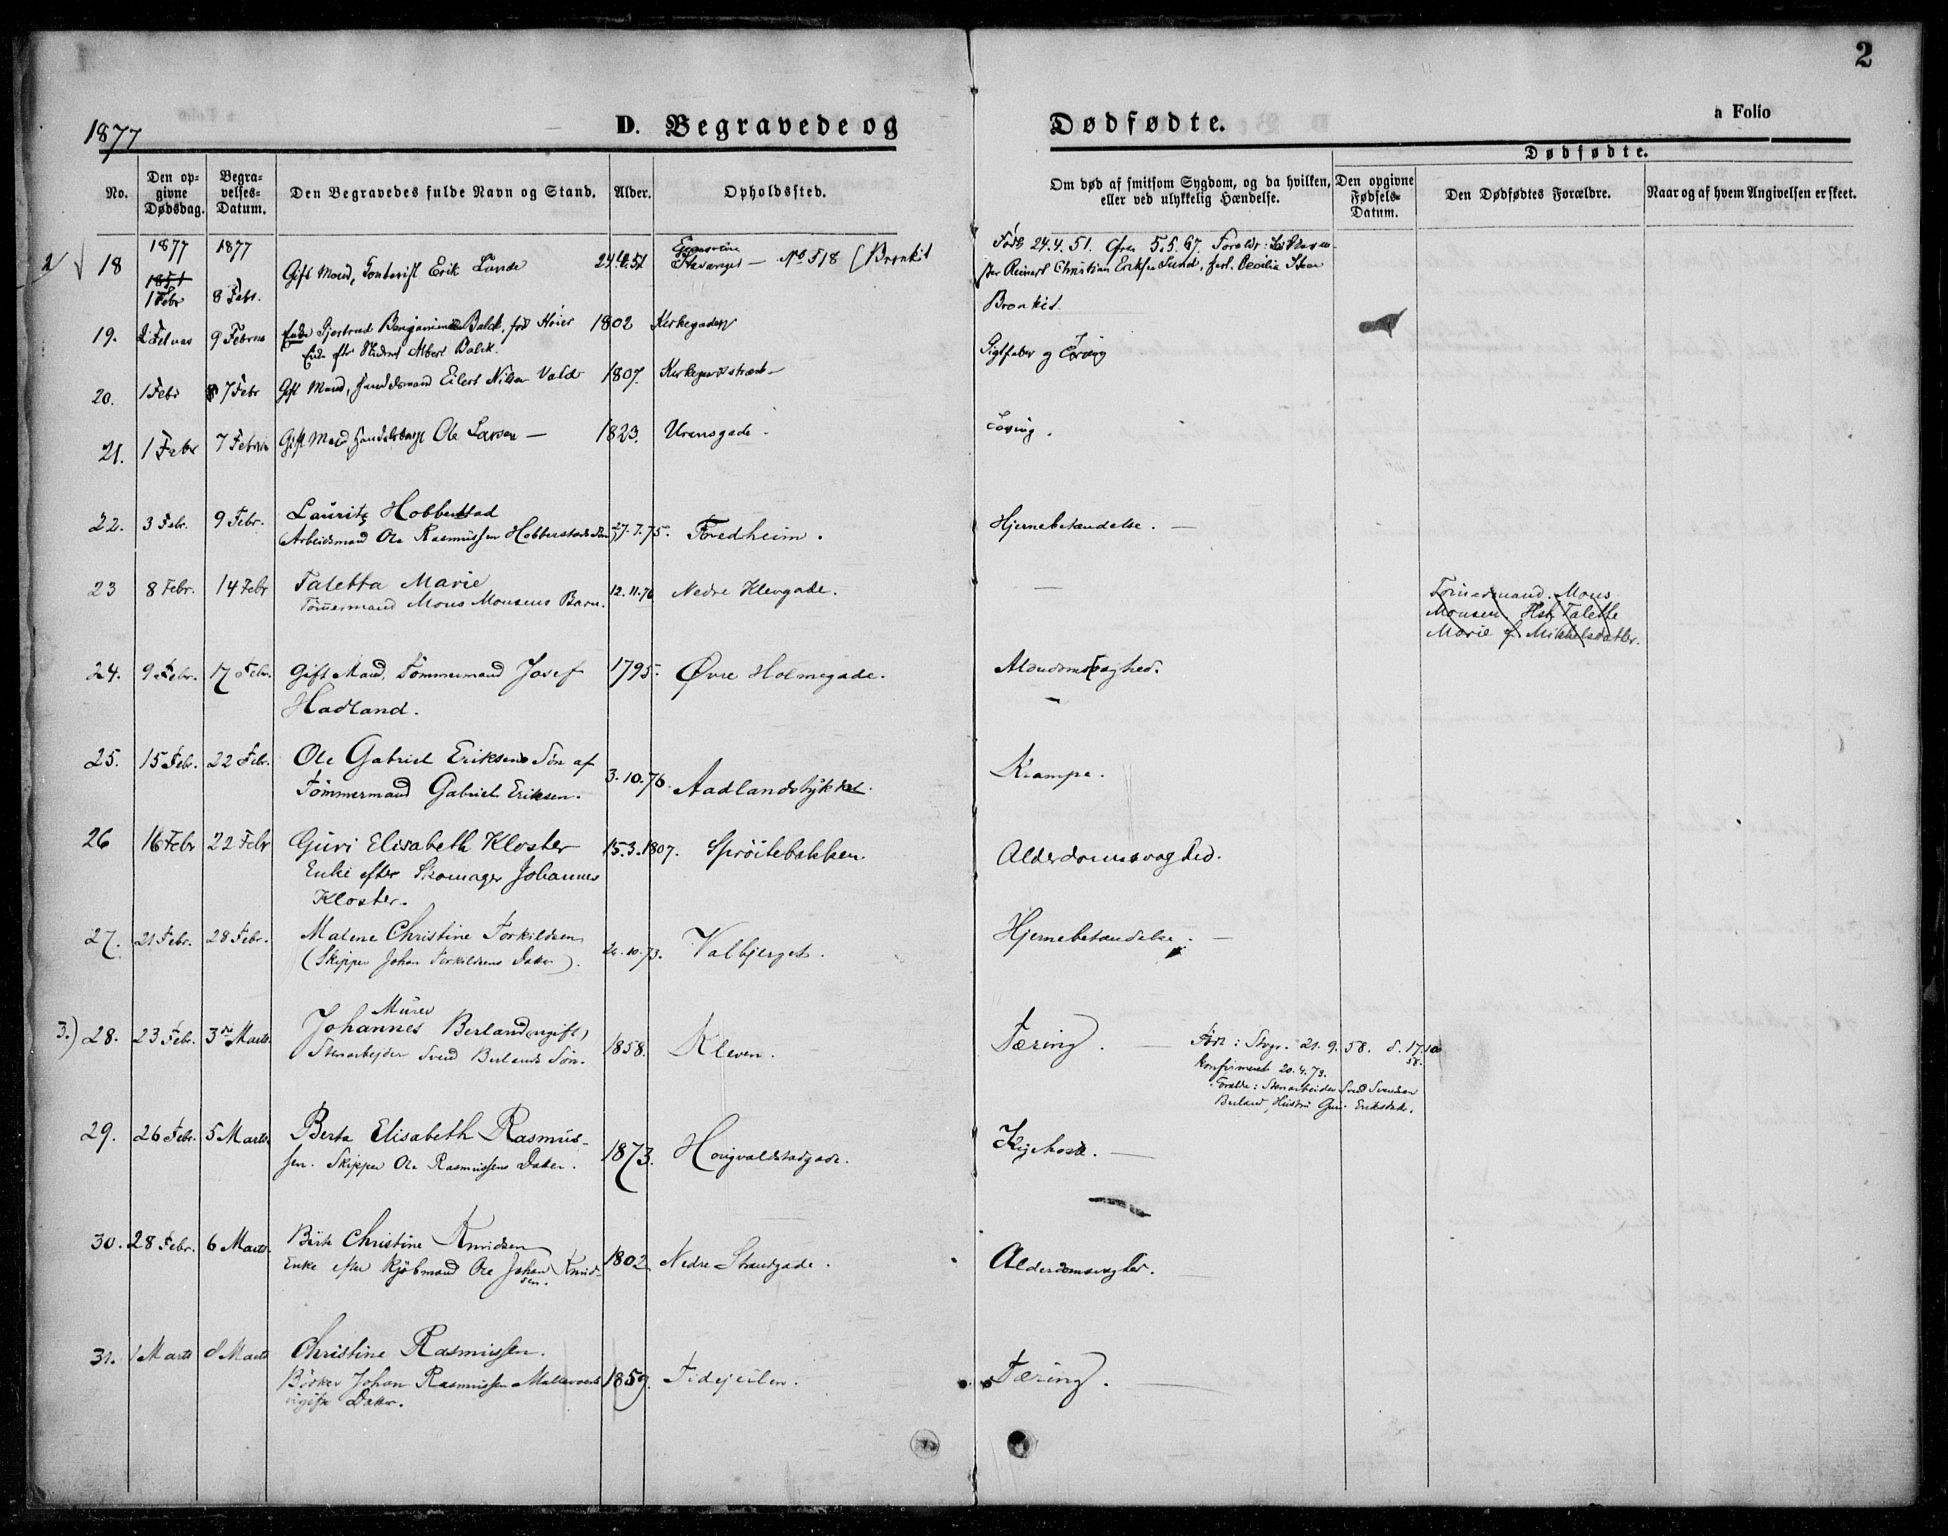 2
1877
D. Begravede og Dødfødte.
a Folio
No.
Den opgivne Dødsdag.
Begravelses-Datum.
Den Begravedes fulde Navn og Stand.
Alder.
Opholdssted.
Om død af smitsom Sygdom, og da hvilken, eller ved ulykkelig Hændelse.
Dødfødte.
Den opgivne Fødsels-Datum.
Den Dødfødtes Forældre.
Naar og af hvem Angivelsen er skeet.
1877 1877
18 1 Febr 8 Febr. Gift Mand, Erik Lunde 24.4.51 Stavanger — No 518 (Bronkit
Født 24.4.51. 5.5.67.
Reinert Christian Cecilia
Bronkit.
19. 9 Februar Enke Gjertrud Balck, fød Høier 1802 Kirkegaden
Enke efter Albert Balck.
Gigtfeber og Tæring
20. 1 Febr 7 Febr Gift Mand, Eilert Nilsen Vald 1807.
21. 1 Febr 7 Februar Gift Mand, Ole Larsen — 1823. Uransgade.
Tæring.
22. 3 Febr. 9 Febr. Lauritz Hobberstad
Arbeidsmand Ole Rasmussen Hobberstads Søn 27.7.75. Fredheim.
Hjernebetændelse. —
23 8 Febr. 14 Febr Taletta Marie
Tømmermand Mons Monsens Barn. 12.11.76 Nedre Klevgade.
—
Tømmermand Mons
Monsen. Hst. Talette
Marie f. Mikkelsdatter.
24. 9 Febr. 17 Febr. Gift Mand Tømmermand Josef
Hadland. 1795. Øvre Holmegade.
Alderdomssvaghed.
25. 15 Febr. 22 Febr. Ole Gabriel Eriksen Søn af
Tømmermand Gabriel Eriksen. 3.10.76. Aadlandstykket.
Krampe.
26 16 Febr 22 Febr Guri Elisabeth Kloster 15.3.1807. Sprøitebakken.
Enke efter Skomager Johannes
Kloster.
Alderdomssvaghed.
27. 21 Febr. 28 Febr. Malene Christine Torkildsen
(Skipper Johan Torkildsens Datter). 10.73. Valbjerget.
Hjernebetændelse. —
Murer
3.) 28. 23 Febr. 3 Marts Johannes Berland (ugift)
Stenarbejder Svend Berlands Søn. 1858. Kleven.
Tæring. —
Født: Stvgr. 21.9.58. d. 17.10
58.
konfirmeret 20.4.73.
Forældre: Stenarbeider Svend Svendsen
Berland, Hustru Guri Eriksdatter.
29. 26 Febr. 5 Marts Berta Elisabeth Rasmus-
sen. Skipper Ole Rasmussens Datter. 1873.
Kighoste. —
30. 28 Febr. 6 Marts. Christine Knudsen
Enke efter Kjøbmand Ole Johan Knud-
sen. 1802 Nedre Strandgade.
Alderdomssvaghed.
31. 1 Marts 8 Marts Christine Rasmussen.
Bødker Johan Rasmussen
ugifte Datter. 1859.
Tæring.